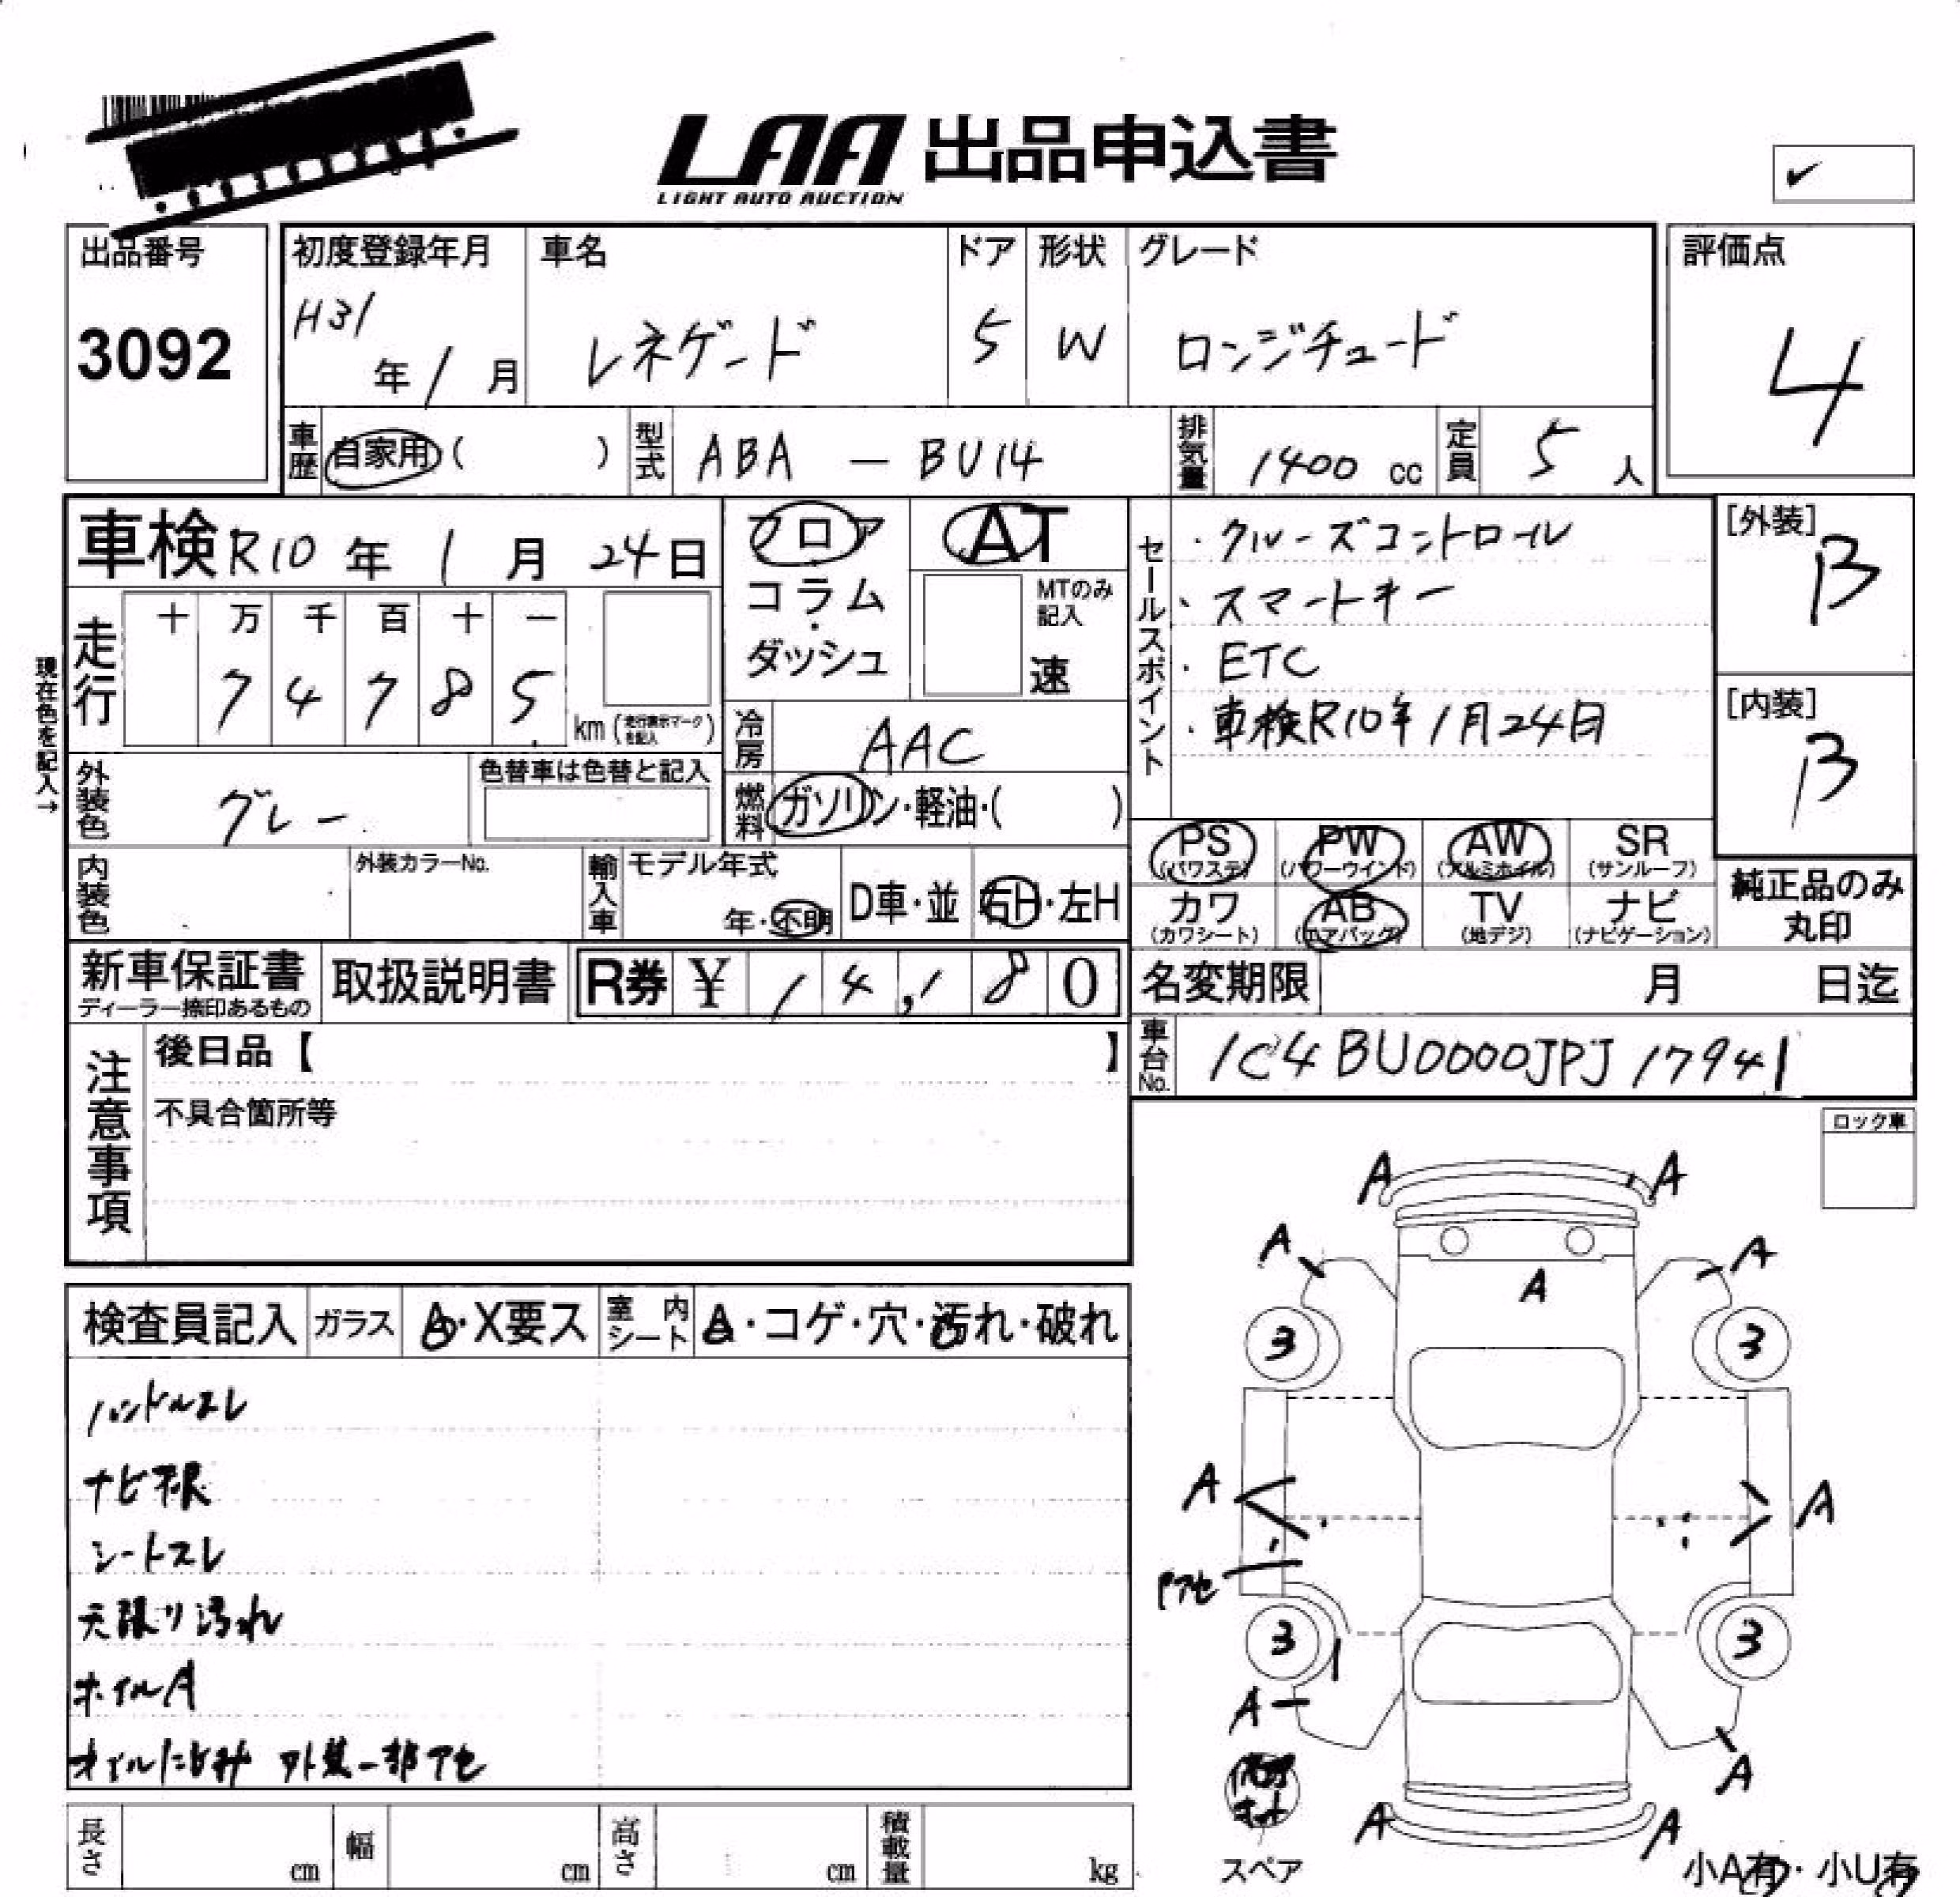 LAA 出品申込書
LIGHT AUTO AUCTION
✓
出品番号
3092
初度登録年月
H31年1月
車名
レネゲード
ドア
5
形状
W
グレード
ロンジチュード
評価点
4
車歴 自家用( )
型式 ABA - BU14
排気量 1400 cc
定員 5人
車検 R10年1月24日
フロア
コラム・
ダッシュ
AT
MTのみ記入
速
セールスポイント
・クルーズコントロール
・スマートキー
・ETC
・車検R10年1月24日
[外装]
B
[内装]
B
現在色を記入→
走行
十 万 千 百 十 一
7 4 7 8 5
km(走行表示マークを記入)
冷房 AAC
燃料 ガソリン・軽油・( )
外装色 グレー
色替車は色替と記入
内装色
外装カラーNo.
輸入車 モデル年式
年・不明
D車・並
右H・左H
PS(パワステ) PW(パワーウインド) AW(アルミホイル) SR(サンルーフ)
カワ(カワシート) AB(エアバッグ) TV(地デジ) ナビ(ナビゲーション)
純正品のみ丸印
新車保証書
ディーラー捺印あるもの
取扱説明書
R券 ¥ 14,180
名変期限 月 日迄
車台No. 1C4BU0000JPJ17941
注意事項
後日品【 】
不具合箇所等
ロック車
検査員記入 ガラス A・X要ス 室内シート A・コゲ・穴・汚れ・破れ
ハンドルスレ
ナビ不良
シートスレ
天張り汚れ
ホイルA
オイルにじみ 外装一部アセ
A A
A A
A
3 3
A A
Pアセ
3 3
A
A
A A
スペア
小A有・小U有
長さ cm 幅 cm 高さ cm 積載量 kg